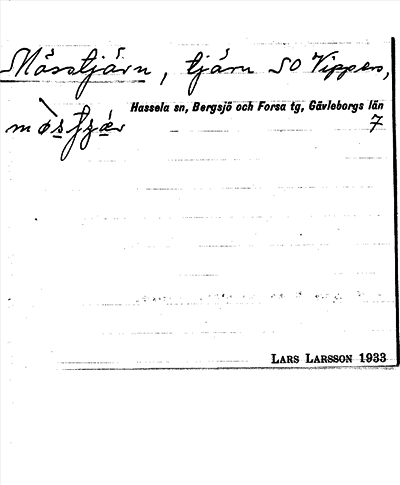 Måsstjärn, tjärn SO Vippen,
Hassela sn, Bergsjö och Forsa tg, Gävleborgs län
7
LARS LARSSON 1933